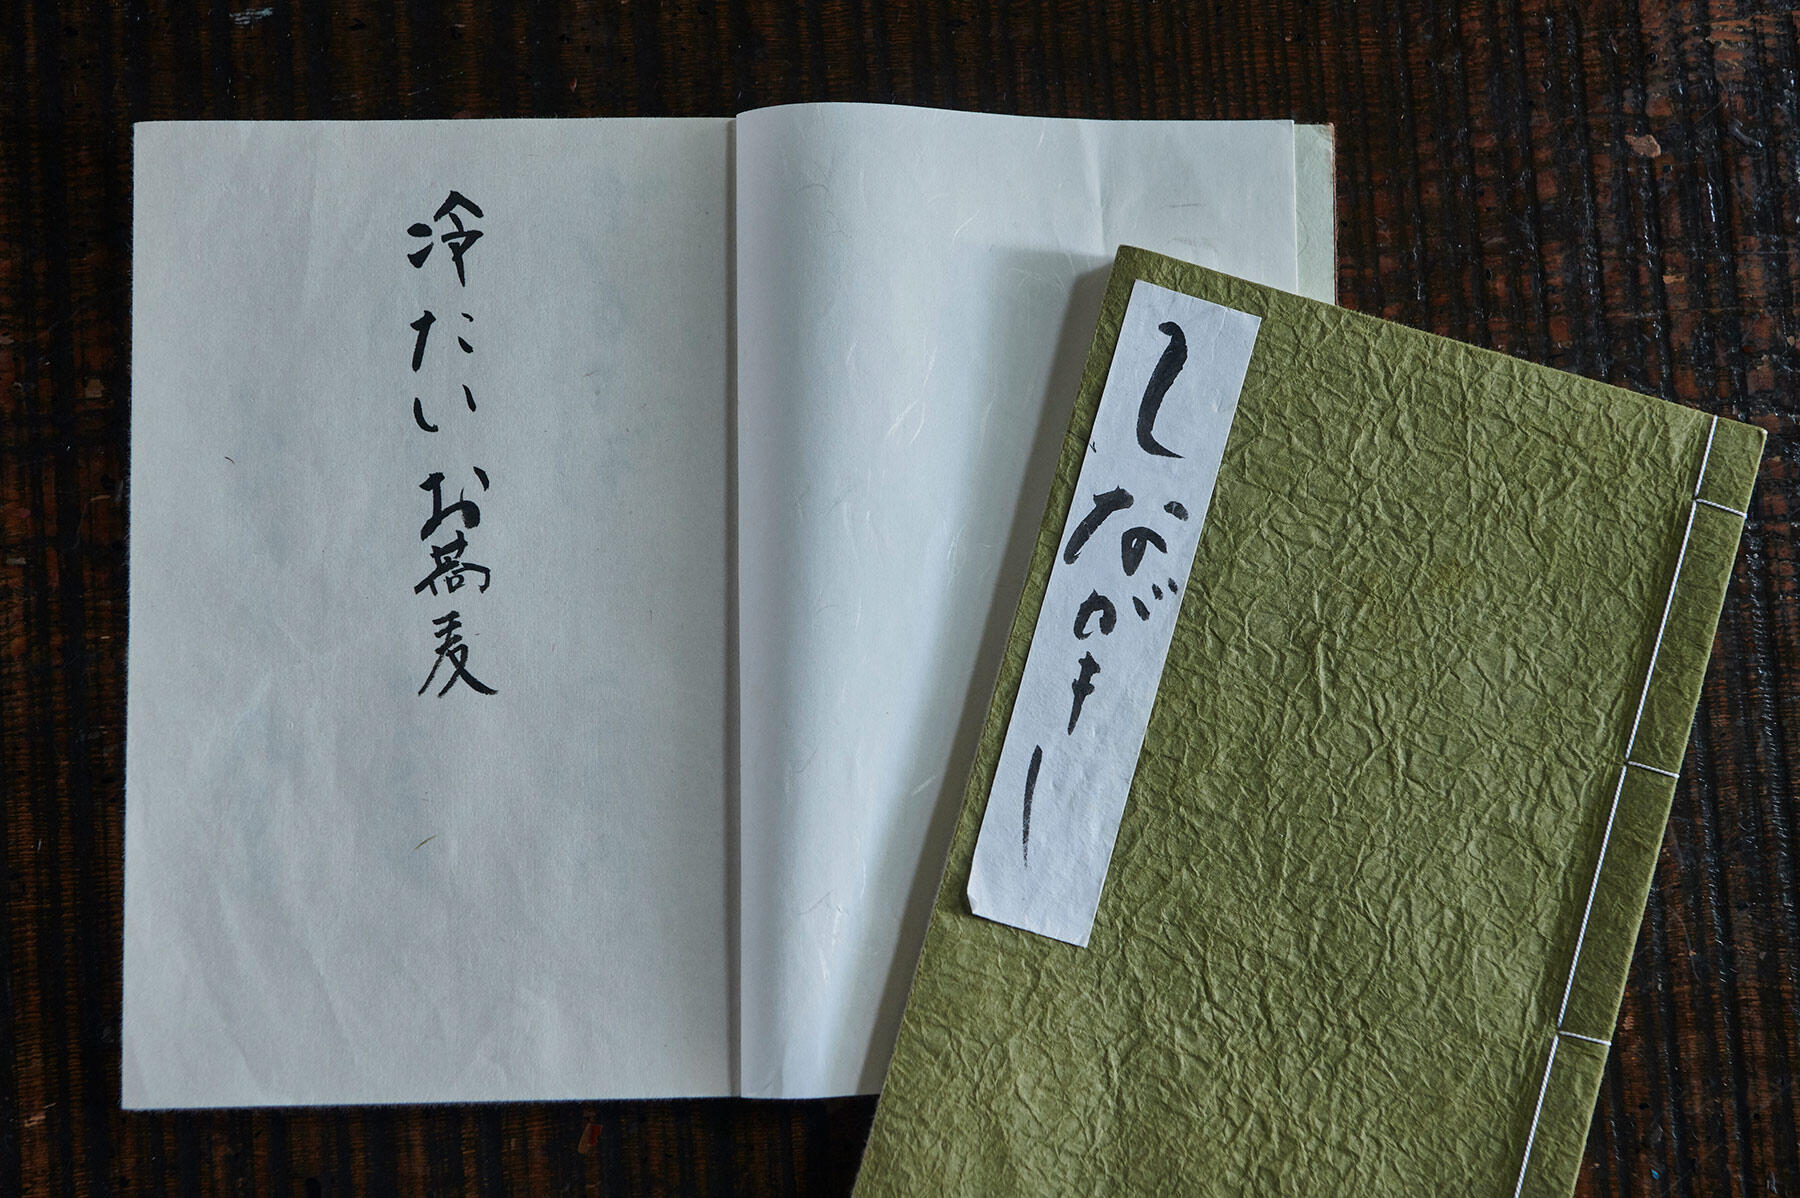 冷たいお蕎麦
しながき